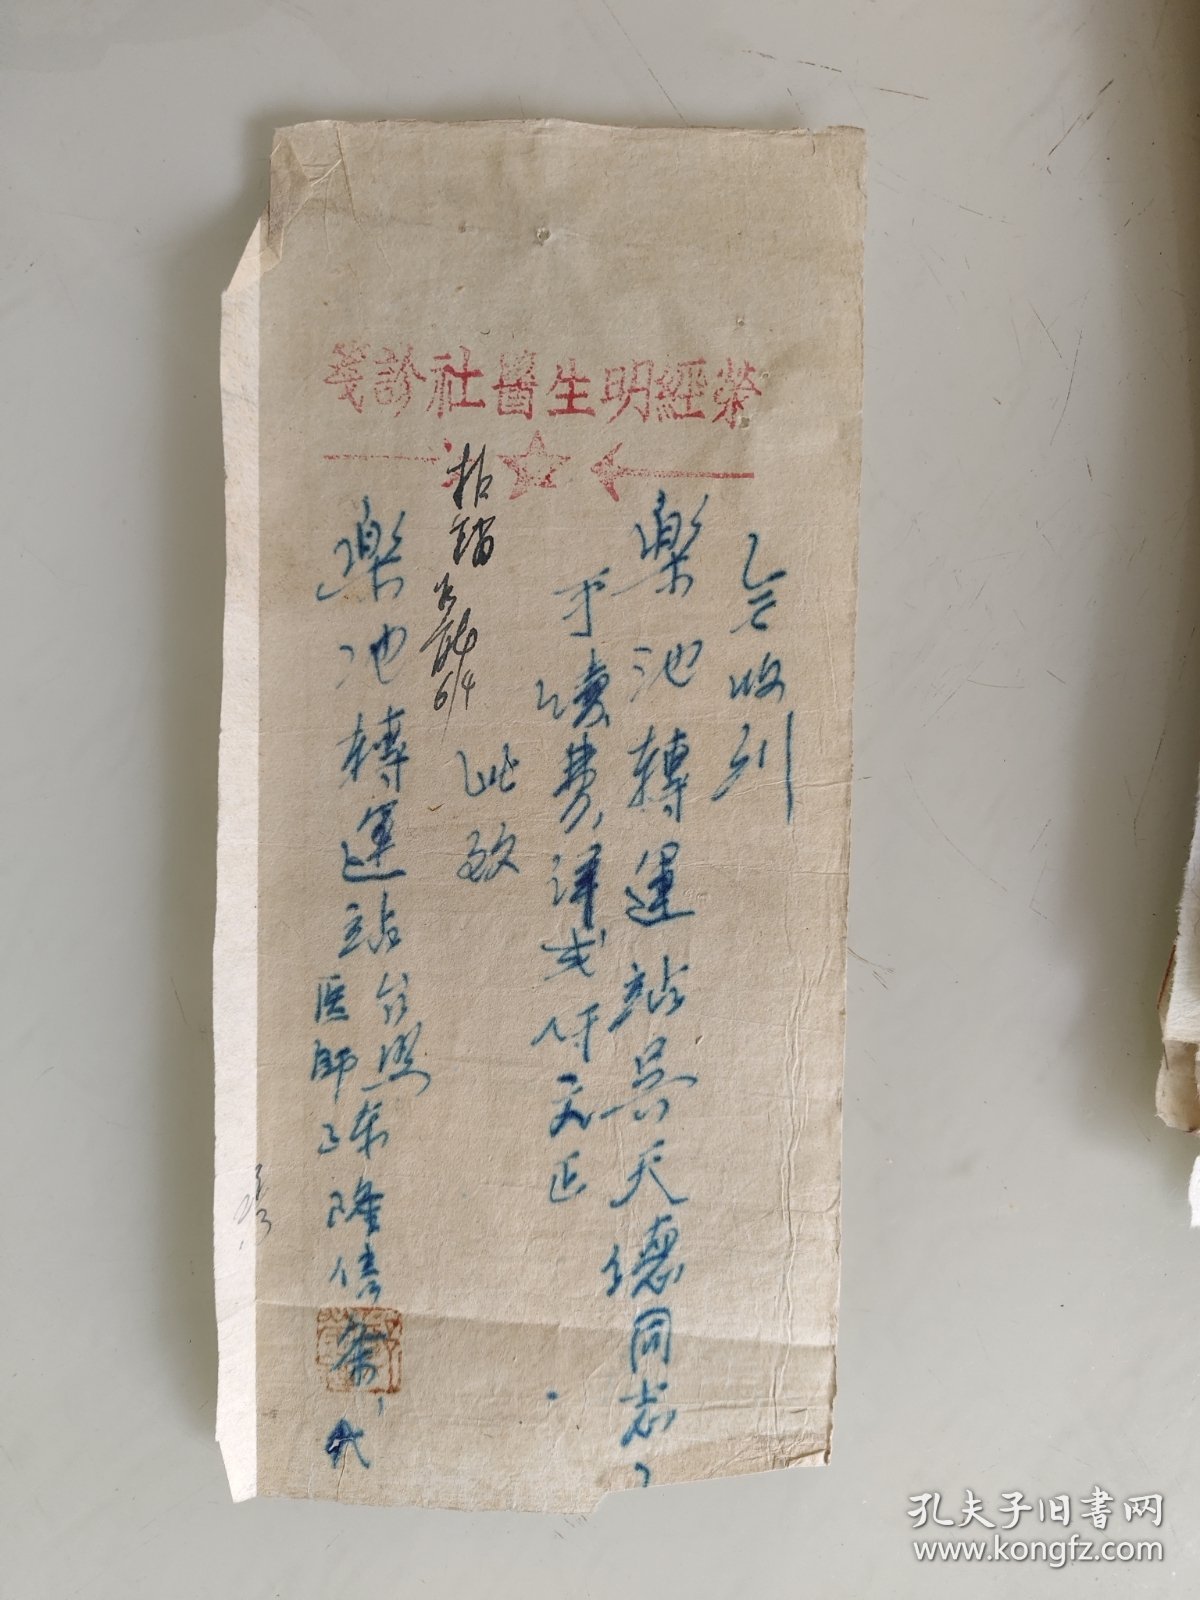 榮經明生醫社診箋
今收到
樂池轉運站吳天德同志
手續費洋弍仟元正
此致
樂池轉運站台照
医師陈隆信
代
6/4
孔夫子旧书网
www.kongfz.com